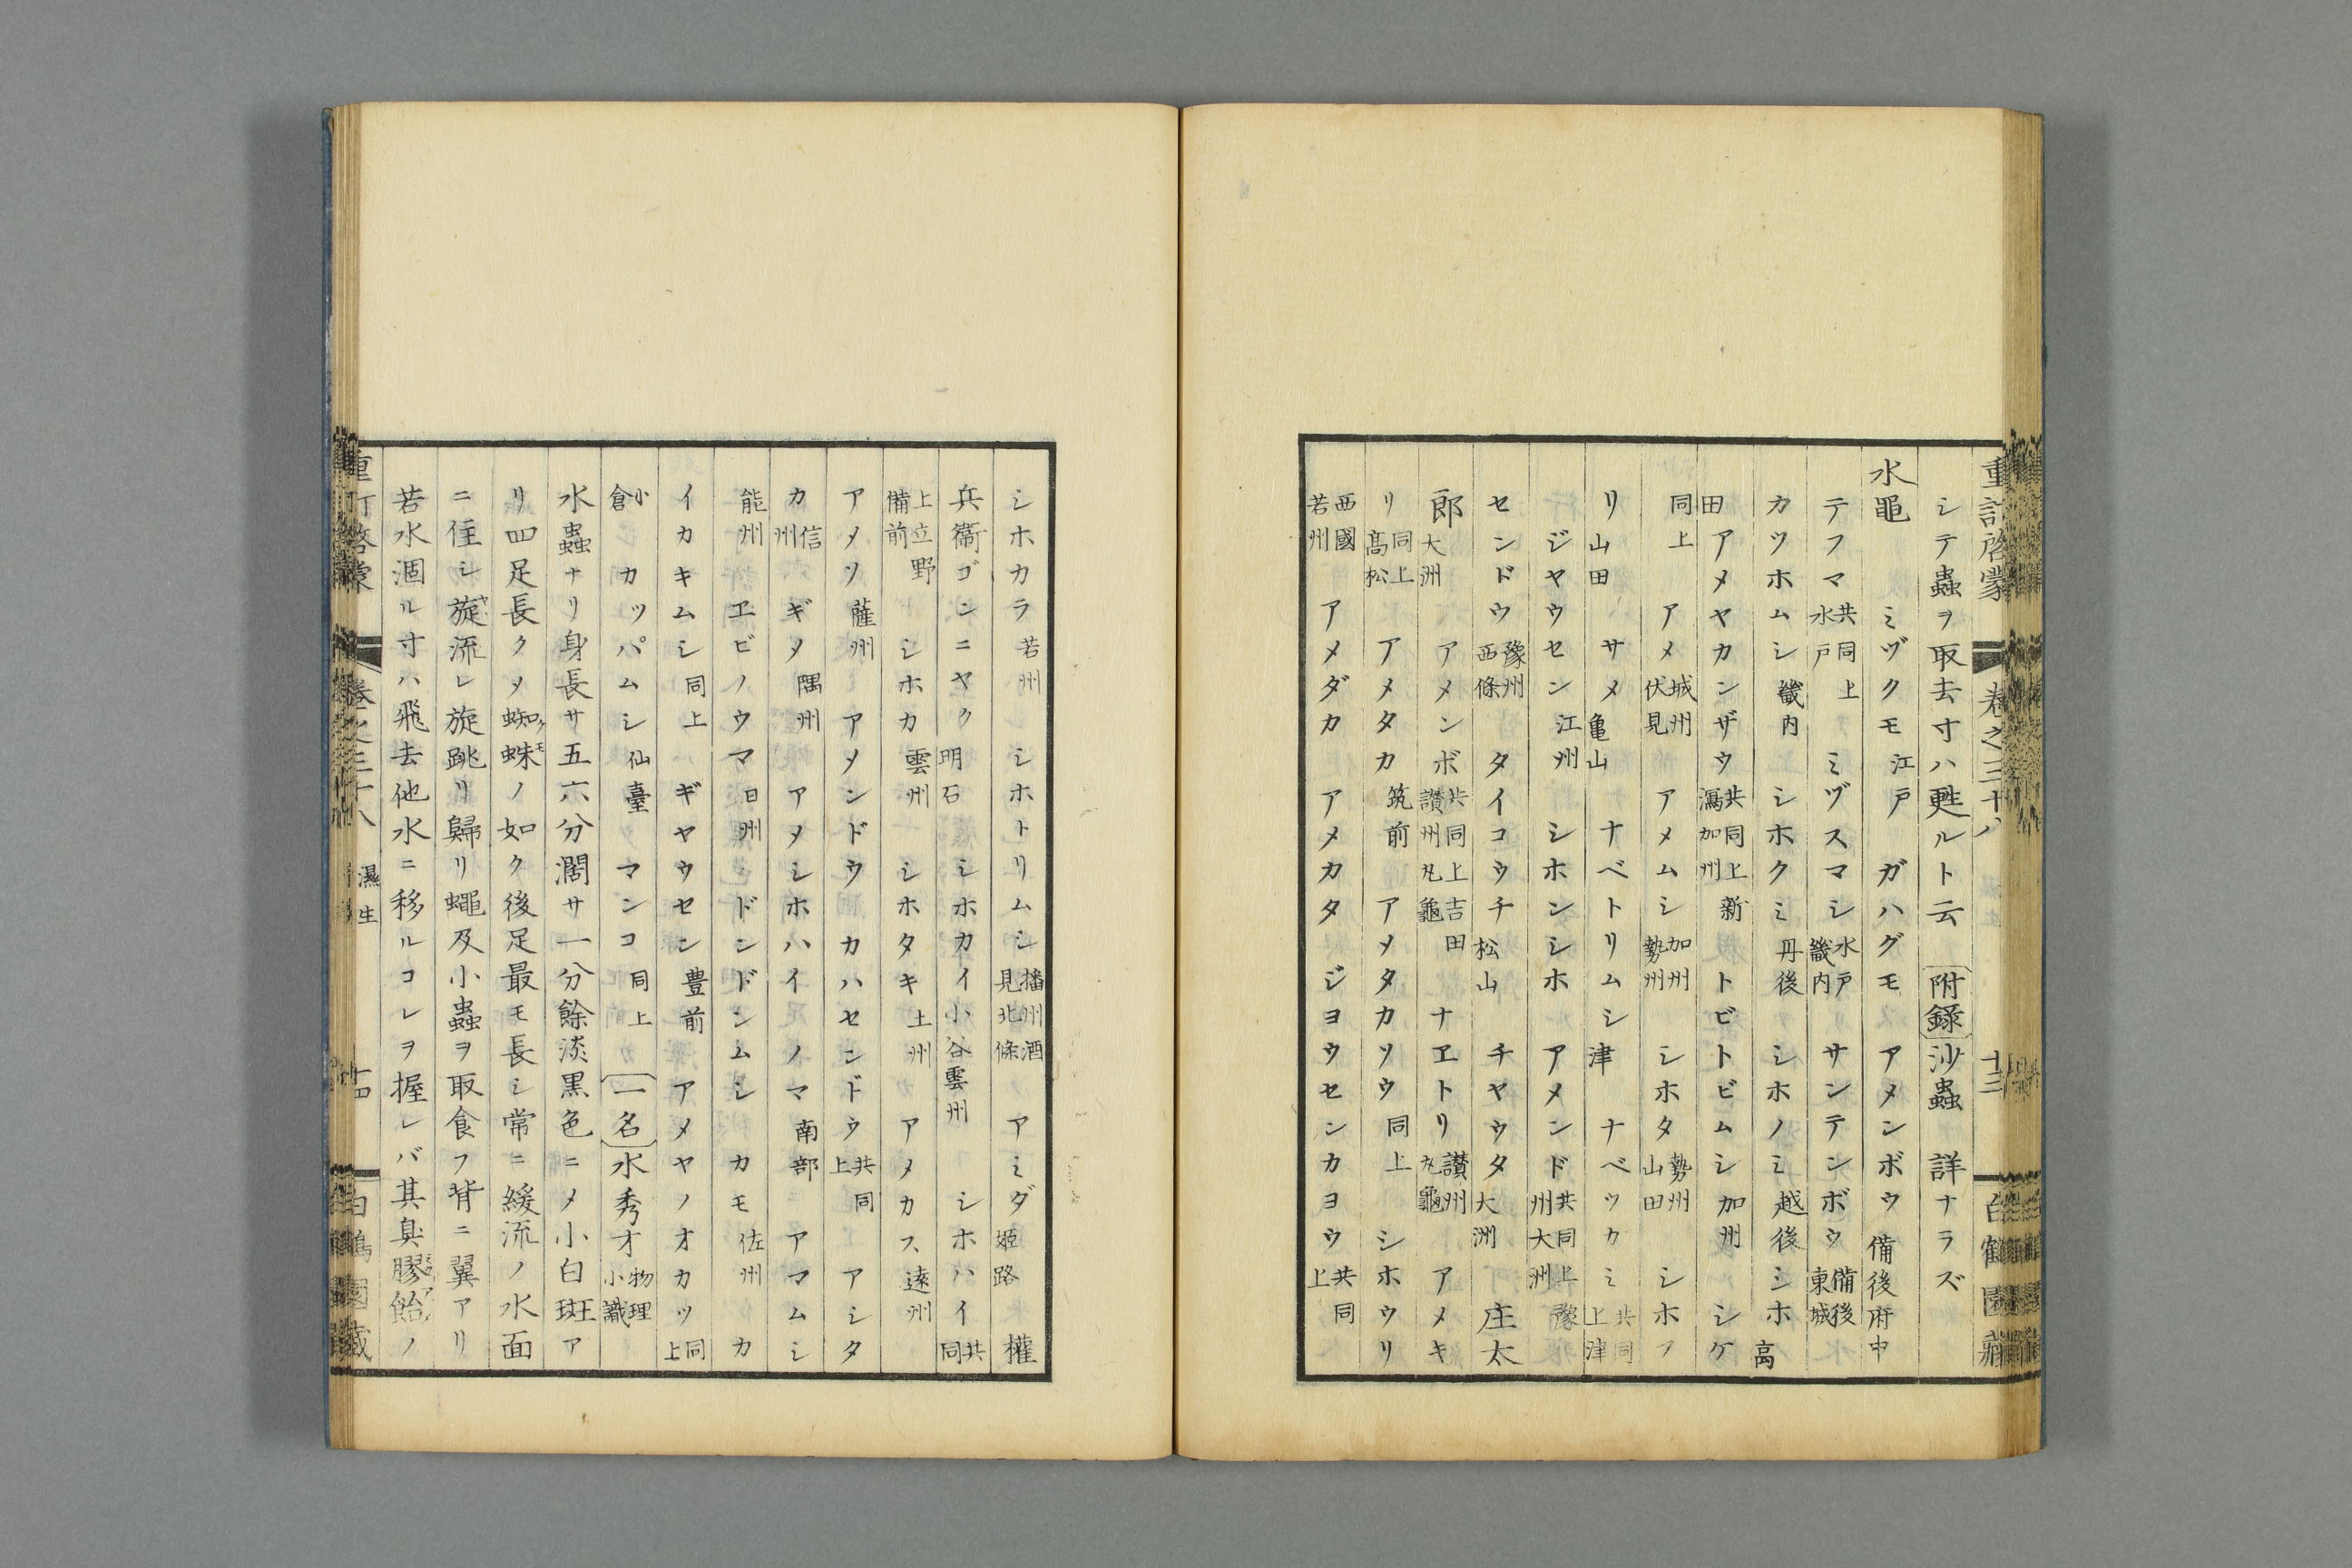 シテ蟲ヲ取去寸ハ甦ルト云 附録 沙蟲 詳ナラズ
水黽 ミヅクモ 江戸 ガハグモ アメンボウ 備後府中
テフマ 共同上水戸 ミヅスマシ 水戸畿内 サンテンボウ 備後東城
カツホムシ 畿内 シホクミ 丹後 シホノミ 越後 シホ 高
田 アメヤカンザウ 共同上新瀉加州 トビトビムシ 加州 シケ
同上 アメ 城州伏見 アメムシ 加州勢州 シホタ 勢州山田 シホフ
リ 山田 サメ 亀山 ナベトリムシ 津 ナベツカミ 共同上津
ジヤウセン 江州 シホンシホ アメンド 共同上豫州大洲
センドウ 豫州西條 タイコウチ 松山 チヤウタ 大洲 庄太
郎 大洲 アメンボ 共同上吉田讃州丸龜 ナエトリ 讃州丸龜 アメキ
リ 同上高松 アメタカ 筑前 アメタカソウ 同上 シホウリ
西國若州 アメダカ アメカタ ジヨウセンカヨウ 共同上
重訂啓蒙 卷之三十八 十三 白鶴園藏
シホカラ 若州 シホトリムシ 播州酒見北條 アミダ 姫路 權
兵衞ゴンニヤク 明石 シホカイ 小谷雲州 シホハイ 共同
上立野備前 シホカ 雲州 シホタキ 土州 アメカス 遠州
アメソ 薩州 アメンドウ カハセンドウ 共同上 アシタ
カ 信州 ギメ 隅州 アメシホハイノマ 南部 アマムシ
能州 エビノウマ 日州 ドンドンムシ カモ 佐州 カ
イカキムシ 同上 ギヤウセン 豊前 アメヤノオカツ 同上
小倉 カツパムシ 仙臺 マンコ 同上 一名 水秀才 物理小識
水蟲ナリ身長サ五六分濶サ一分餘淡黒色ニメ小白斑ア
リ四足長クメ蜘蛛ノ如ク後足最モ長シ常ニ緩流ノ水面
ニ住シ旋流レ旋跳リ歸リ蠅及小蟲ヲ取食フ背ニ翼アリ
若水涸ル寸ハ飛去他水ニ移ルコレヲ握レバ其臭膠飴ノ
重訂啓蒙 卷之三十八 濕生 十四 白鶴園藏